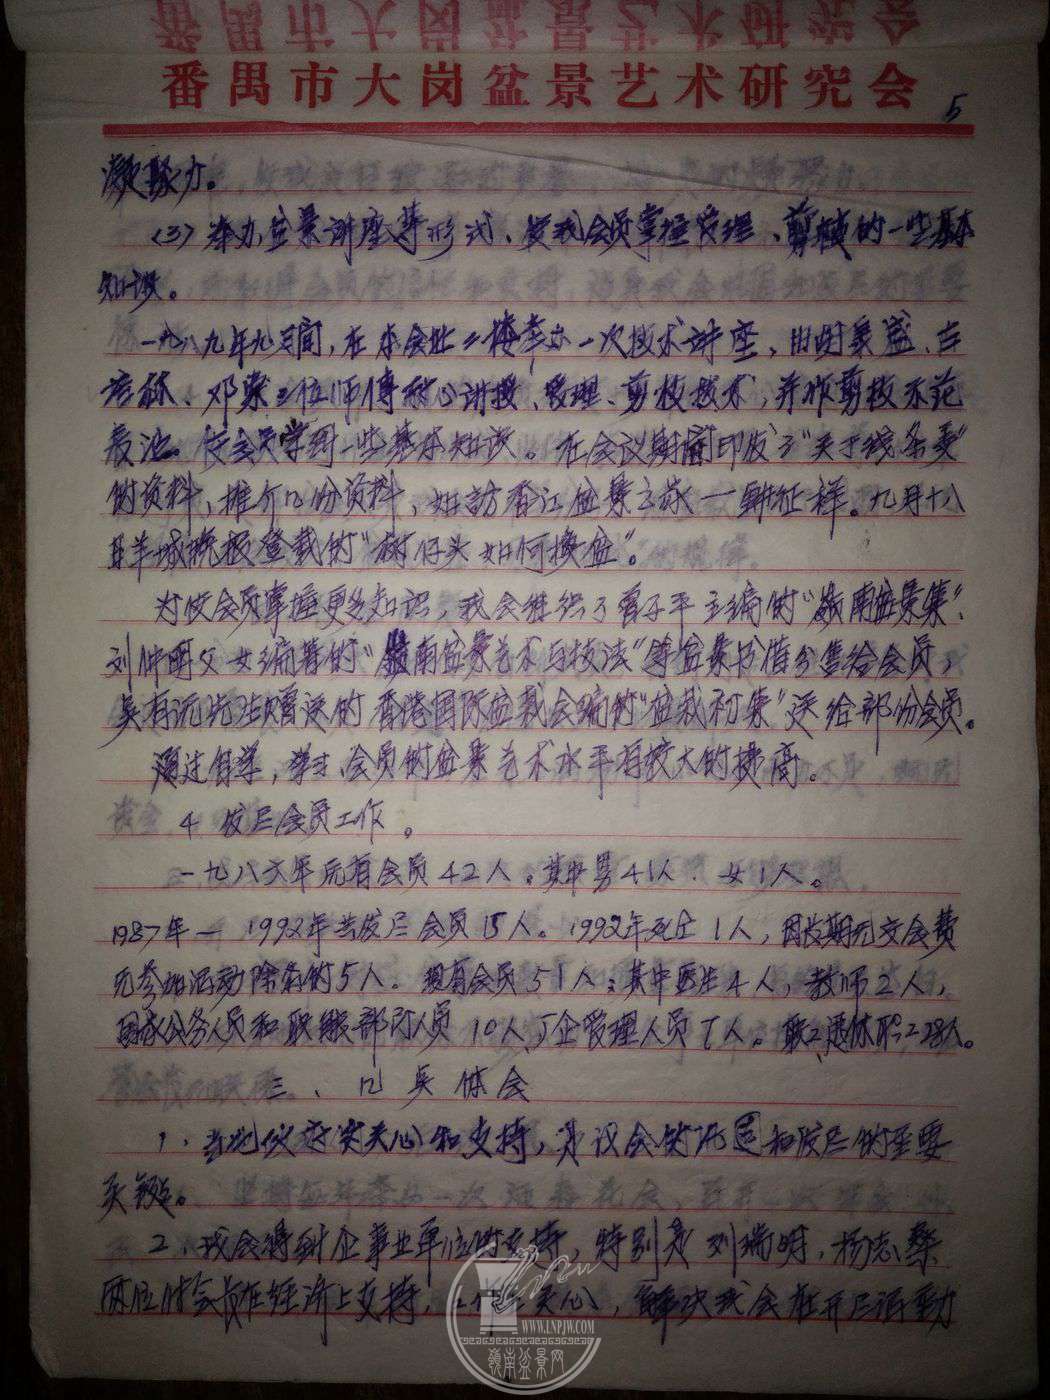 番禺市大岗盆景艺术研究会
5
凝聚力。
(3)举办盆景讲座等形式、使我会员掌握管理、剪枝的一些基本
知识。
一九八九年九月间,在本会址二楼举办一次技术讲座、由
三位师傅 讲授、管理、剪枝技术,并作剪枝示范
表演。使会员学到一些基本知识。在会议期间印发了"关于线条美"
的资料,推介几份资料,如 香江盆景 一 。九月十八
日羊城晚报登载的"树仔头如何换盆"。
对使会员掌握更多知识,我会组织了曾子平主编的"岭南盆景集"、
刘仲明父女编著的"岭南盆景艺术与技法"等盆景书借分售给会员,
吴 赠送的香港国际盆栽会编的"盆栽初集"送给部份会员。
通过自学,学习、会员的盆景艺术水平有较大的提高。
4 发展会员工作。
一九八六年元有会员42人,其中男41人 女1人。
1987年—1992年共发展会员15人。1992年死亡1人,因长期无交会费
无参加活动除名的5人。现有会员51人;其中医生4人,教师2人,
国家公务人员和 部门人员10人、厂企管理人员7人。职工、退休职工28人。
三、几点体会
1、当地 关心和支持,是 会的 和发展的重要
关键。
2、我会得到企事业单位的支持,特别是刘瑞明,杨志
两位 会长在经济上支持,工作上关心,解决我会在开展活动
WWW.LNPJW.COM
嶺南盆景网